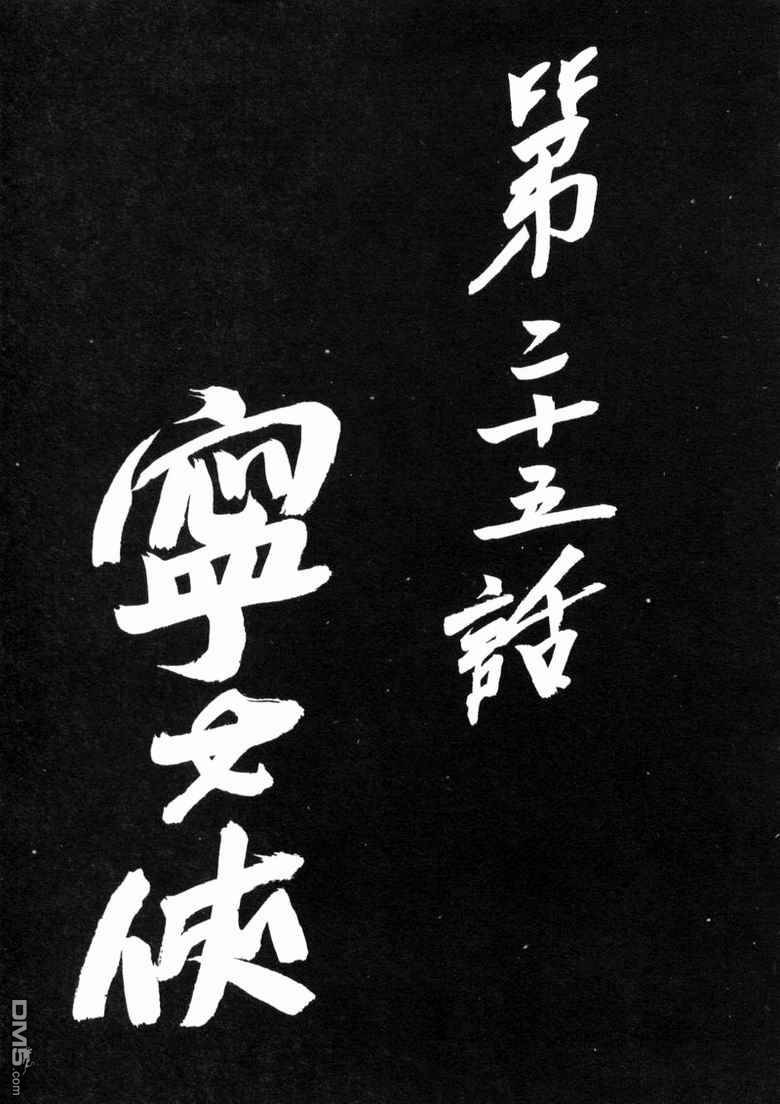 第二十五話
寧女俠
DM5.com